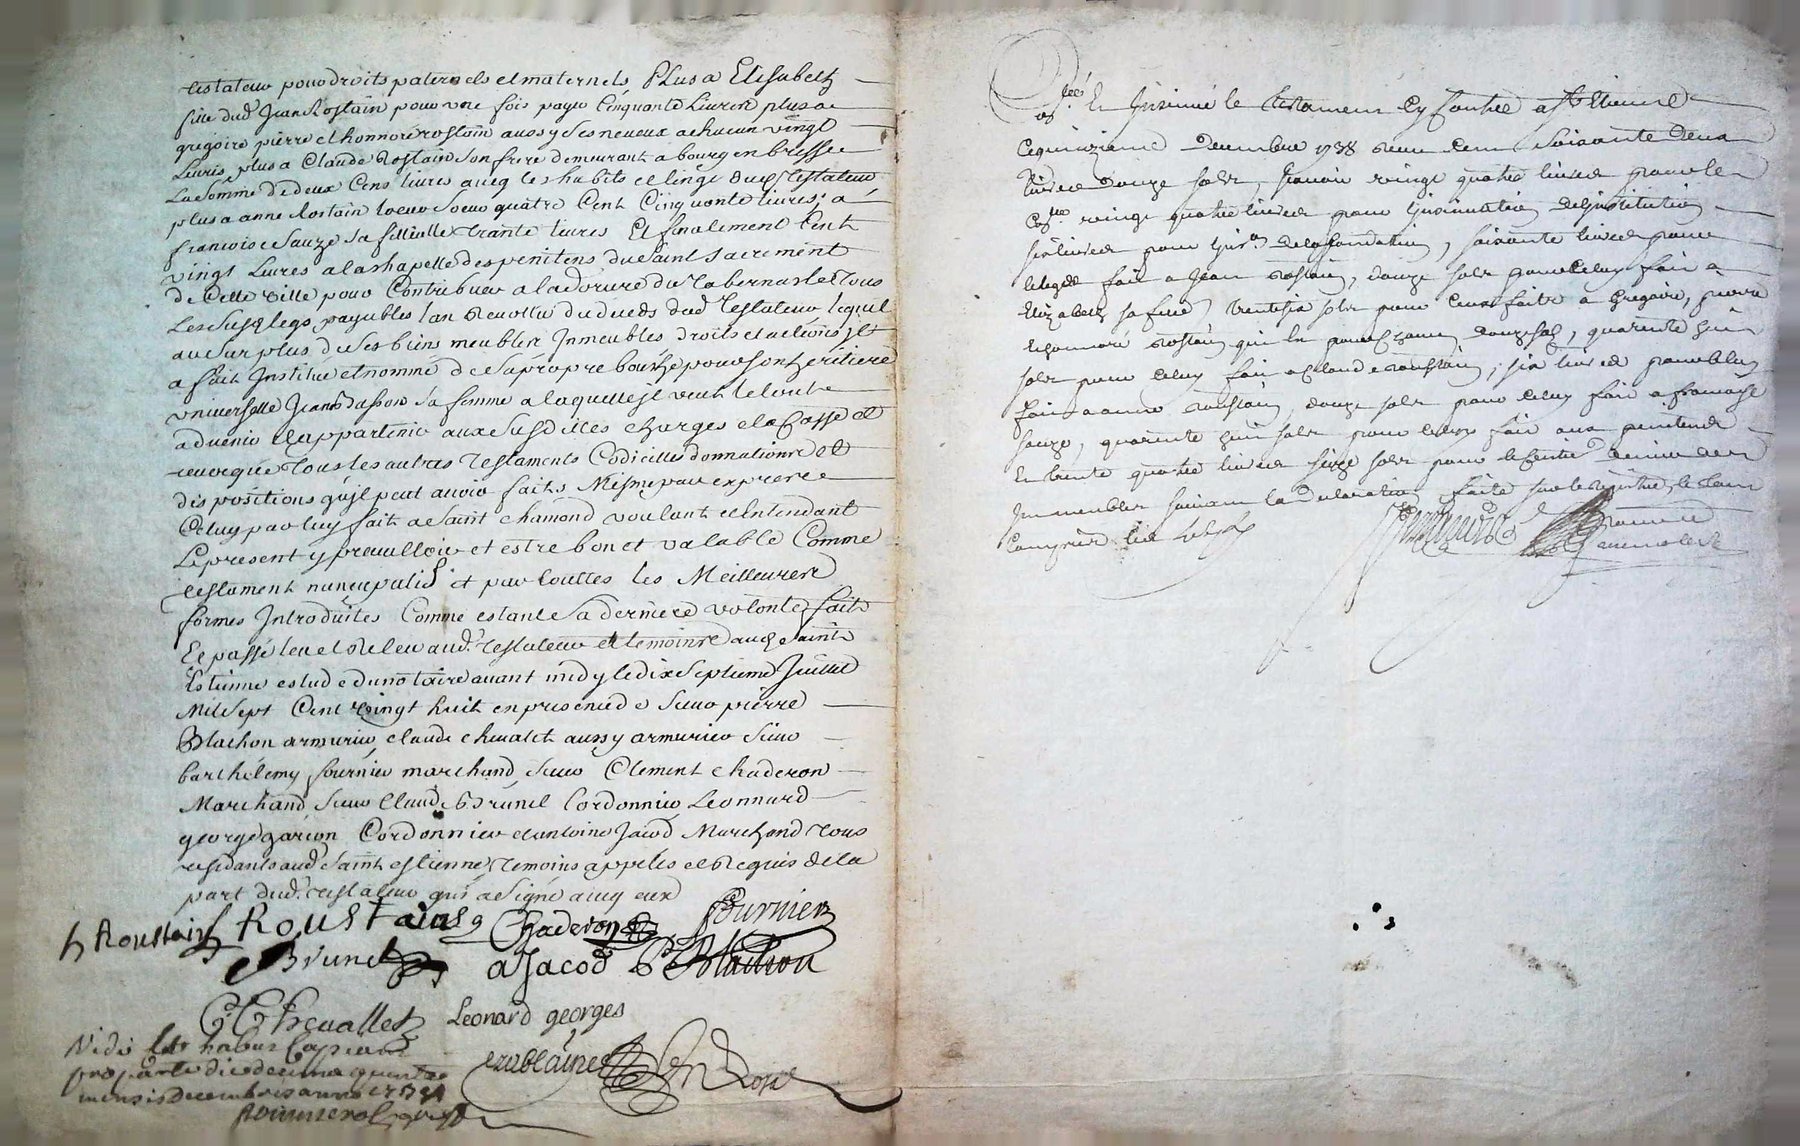 testateur pour droits paternels et maternels, Plus a Elisabeth
fille dud. Jean Rostain pour une fois payer Cinquante Livres plus a
gregoire pierre et honnoré rostain aussy ses neveux achacun vingt
Livres, plus a Claude Rostain son frere demeurant a bourg en bresse
La Somme de deux Cens livres avecq les habits et linge dud. testateur
plus a anne Rostain soeur quatre Cent Cinquante livres, a
francoise Sauze sa filliolle trante livres Et finalement Cent
vingt Livres a la chapelle des penitens du Saint Sacrement
de Cette ville pour Contribuer a la dorure du Tabernacle Tous
Lesdusq legs payables lan revollu du deceds dud Testateur, lequel
au Surplus de ses biens meubles Inmeubles droits et actions, Il
a fait Institué et nommé de sa propre bouche pour son heritiere
universelle Jeanne sa femme a laquelle jl veut le tout
advenir et appartenir aux Susdittes charges et a Cassé et
revocqué Tous les autres Testaments Codicilles donnations et
dispositions qu'jl peut avoir faits Mesme par exprez
Celuy par luy fait a Saint chamond voulant et Entendant
Le present y prevalloir et estre bon et valable Comme
testament nuncupatif et par touttes les Meilleures
formes Introduites Comme estant sa derniere volonté, fait
Et passé leu et releu aud. testateur et temoins audt. Saint
Estienne estude du notaire avant midy le dix Septieme Juillet
Mil Sept Cent vingt huit en presence de Sieur pierre
Blachon armurier, claude chevalet aussy armurier Sieur
barthélemy fournier marchand, Sieur Clement chaderon
Marchand Sieur Claude Brunel Cordonnier Leonnard
george garcon Cordonnier et antoine Jacod Marchand Tous
residants aud. Saint estienne, temoins appelés et Requis de la
part dud. testateur qui a Signé avecq eux
h Roustain Roustain Chaderon fournier
Brunel a Jacod P Blachon
C Chevallet Leonard georges
pro parte die decima quinta
mensis decembris anno 1738
et Insinué le testament cy contre a St Etienne
ce quinzieme decembre 1738 receu cent soixante deux
livres douze sols, scavoir vingt quatre livres pour le
vingt quatre livres pour Insinuation de l'institution
six livres pour de la fondation, soixante livres pour
le legs fait a Jean rostain, douze sols pour celuy fait a
Elizabeth sa fille, trente six sols pour ceux faits a Gregoire, pierre
et honnoré rostain qui est pour chacun douze sols, quarente huit
sols pour celuy fait a Claude roustain, six livres pour celuy
fait a anne roustain, douze sols pour celuy fait a francoise
sauze, quarente huit sols pour celuy fait aux penitents
et trente quatre livres seize sols pour le centieme denier des
Immeubles suivant la declaration faite sur le registre, le tout